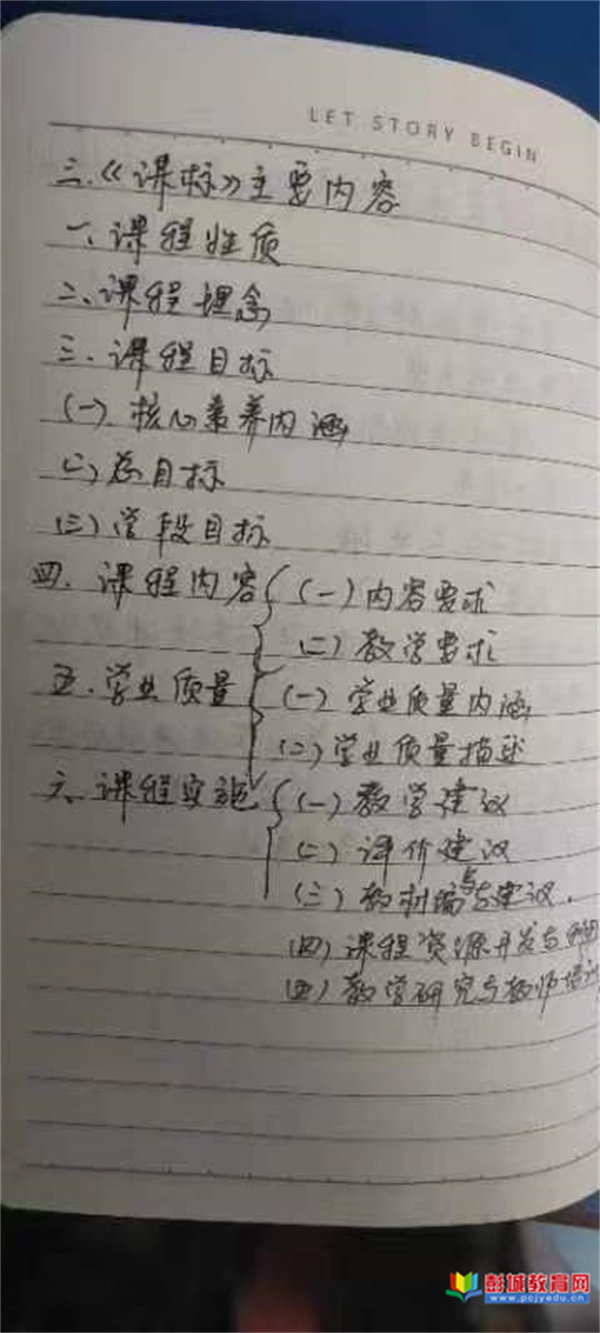 LET STORY BEGIN
三.《课标》主要内容
一、课程性质
二、课程理念
三.课程目标
(一).核心素养内涵
(二)总目标
(三)学段目标
四.课程内容 (一)内容要求
(二)教学要求
五.学业质量 (一)学业质量内涵
(二)学业质量描述
六.课程实施 (一)教学建议
(二)评价建议
(三)教材编写建议.
(四)课程资源开发与利用
(五)教学研究与教师培训
彭城教育网
www.pcjyedu.cn